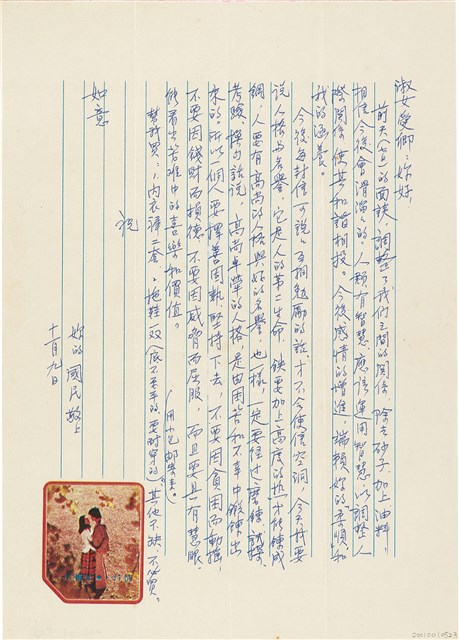 淑女愛卿：妳好，
前天(廿)的面談，調整了我們之間的關係，除去砂子，加上油料，
相信今後會滑溜的。人類有智慧，應該運用智慧，以調整人
際關係，使其和諧相投。今後感情的增進，端賴妳的「柔順」和
我的涵養。
今後每封信可說些互相勉勵的話，才不令使信空洞，今天我要
說人格与名譽，它是人的第二生命，鉄要加上高度的热才能煉成
鋼，人要有高尚的人格與好的名譽，也一樣，一定要经过磨鍊、試探、
考驗，換句話說，高尚卓榮的人格，是由困苦和不幸中鍛鍊出
來的，所以一個人要擇善固執，堅持下去，不要因貧困而動搖，
不要因錢財而損德，不要因威脅而屈服，而且要具有慧眼，
能看出苦难中的喜樂和價值。
替我買：1.內衣褲二套 拖鞋一双(底不要平的，要耐穿的)其他不缺，不必買。
(用小包郵寄來)
祝
如意
妳的 國民 敬上
十一月九日
20010010523